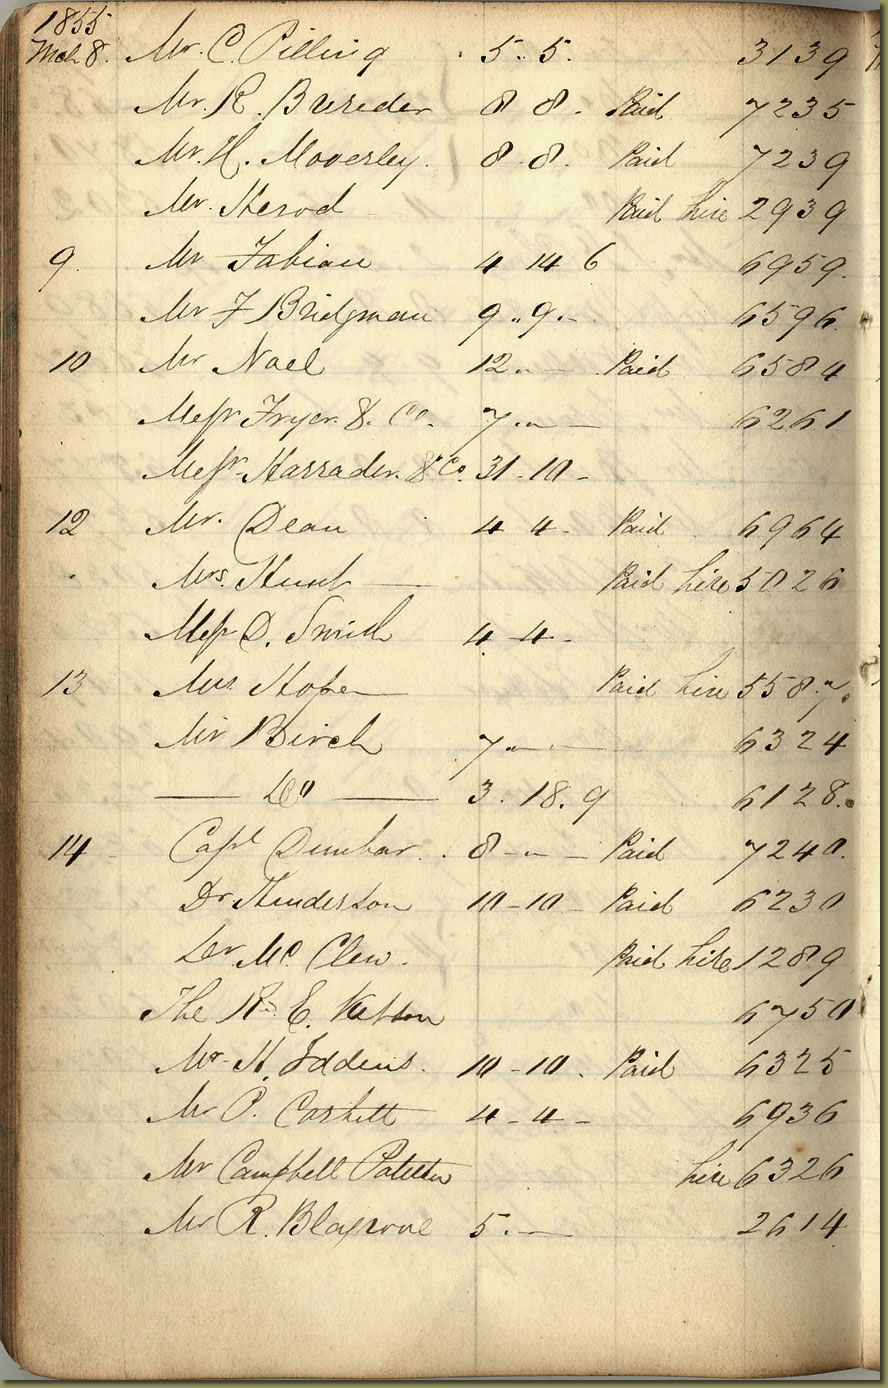 1855
Mch 8. Mr. C. Pilling 5. 5. 3139
Mr. R. 8 8. Paid 7235
Mr. H. Moverley. 8. 8. Paid 7239
Mr. Herod Paid hire 2939
9. Mr Fabian 4 14 6 6959.
Mr F Bridgman 9 .. 9 .. - 6596.
10 Mr Noel 12 .. - Paid 6584
Messrs Fryer & Co. 7 .. - 6261
Messrs & Co. 31 - 10 -
12 Mr. Dean 4 4 - Paid 6964
Mrs. Hunt — Paid hire 5026
D. Smith 4 - 4 -
13 Paid hire 5587.
Mr Birch 7 .. - 6324
— Do — 3. 18. 9 6128.
14 Capt Dunbar. 8 - .. - Paid 7240.
Dr Henderson 10 - 10 - Paid 6230
Mc. Clew. Paid hire 1289
The E. 6750
Mr H. Iddens. 10 - 10. Paid 6325
Mr P. 4 - 4 - 6936
Mr Campbell hire 6326
Mr R. Blagrove 5. — 2614